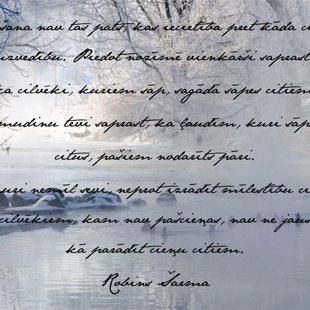 šana nav tas pats, kas iecietība pret kāda ci
uzvedību. Piedot nozīmē vienkārši saprast
ka cilvēki, kuriem sāp, sagādā sāpes citiem
mudinu tevi saprast, ka ļaudīm, kuri sāp
citus, pašiem nodarīts pāri.
uri nemīl sevi, neprot izrādīt mīlestību ci
cilvēkiem, kam nav pašcieņas, nav ne jaus
kā parādīt cieņu citiem.
Robins Šarma